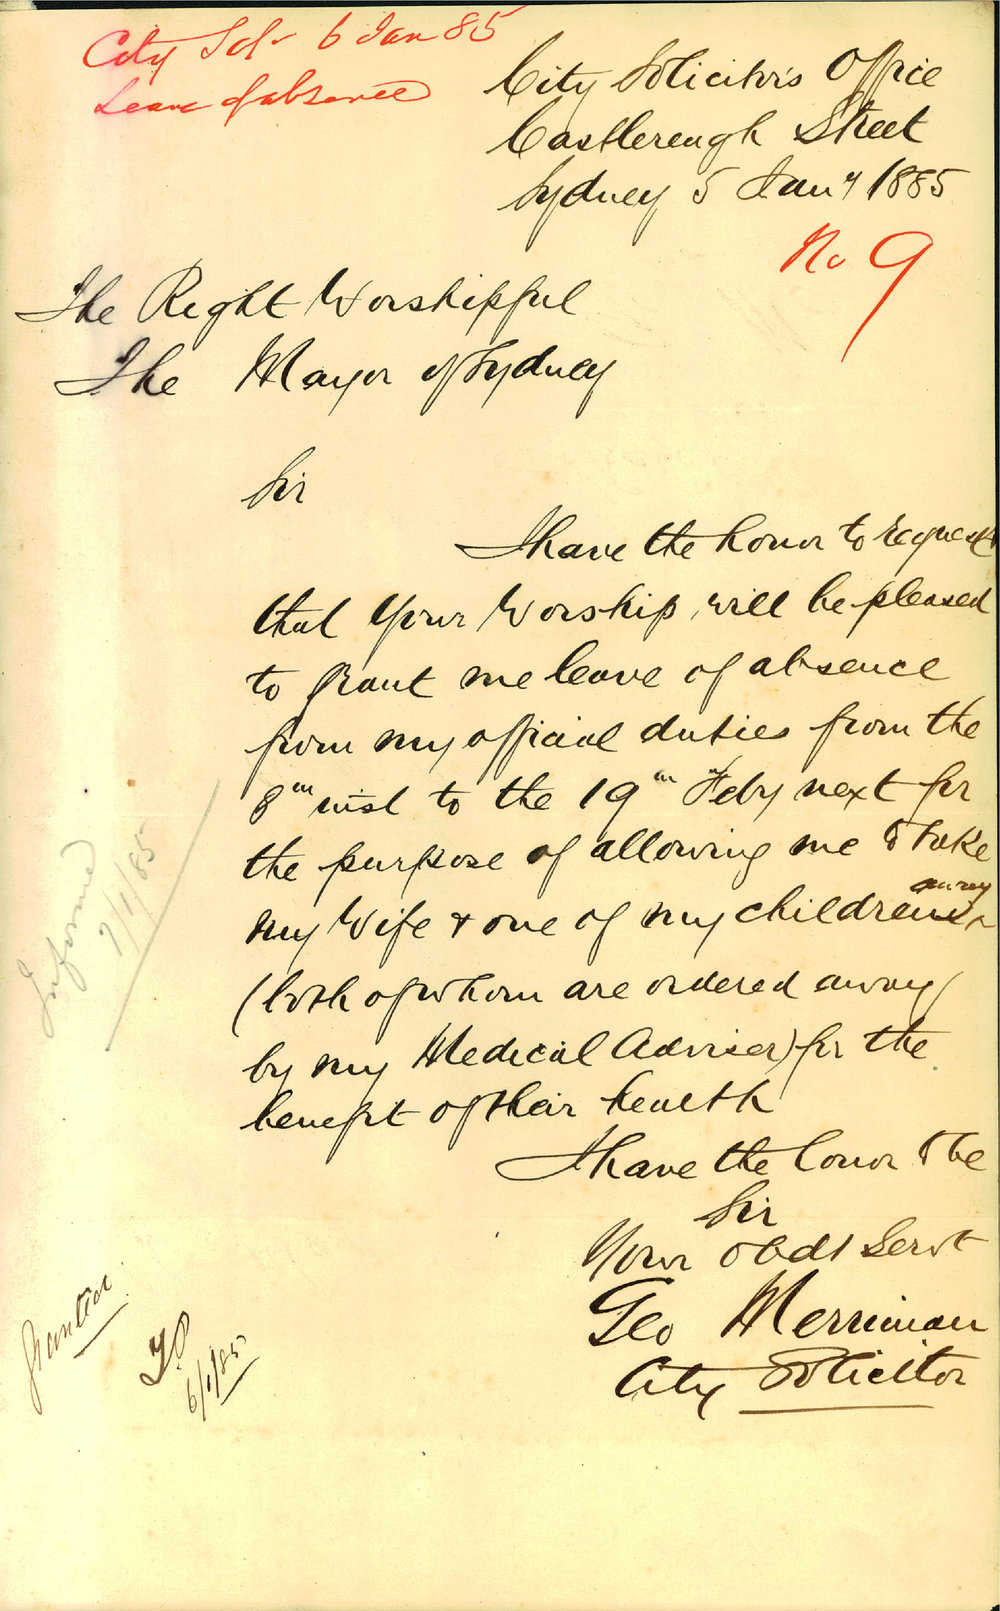 City Sol 6 Jan 85
Leave of absence
City Solicitor's Office
Castlereagh Street
Sydney 5 Jany 1885
No 9
The Right Worshipful
The Mayor of Sydney
Sir
I have the honor to request
that Your Worship will be pleased
to grant me leave of absence
from my official duties from the
8th inst to the 19th Feby next for
the purpose of allowing me to take
my Wife & one of my children away
(both of whom are ordered away
by my Medical Adviser) for the
benefit of their health
I have the honor to be
Sir
Your obdt Servt
Geo Merriman
City Solicitor
Informed
7/1/85
Granted
6/1/85